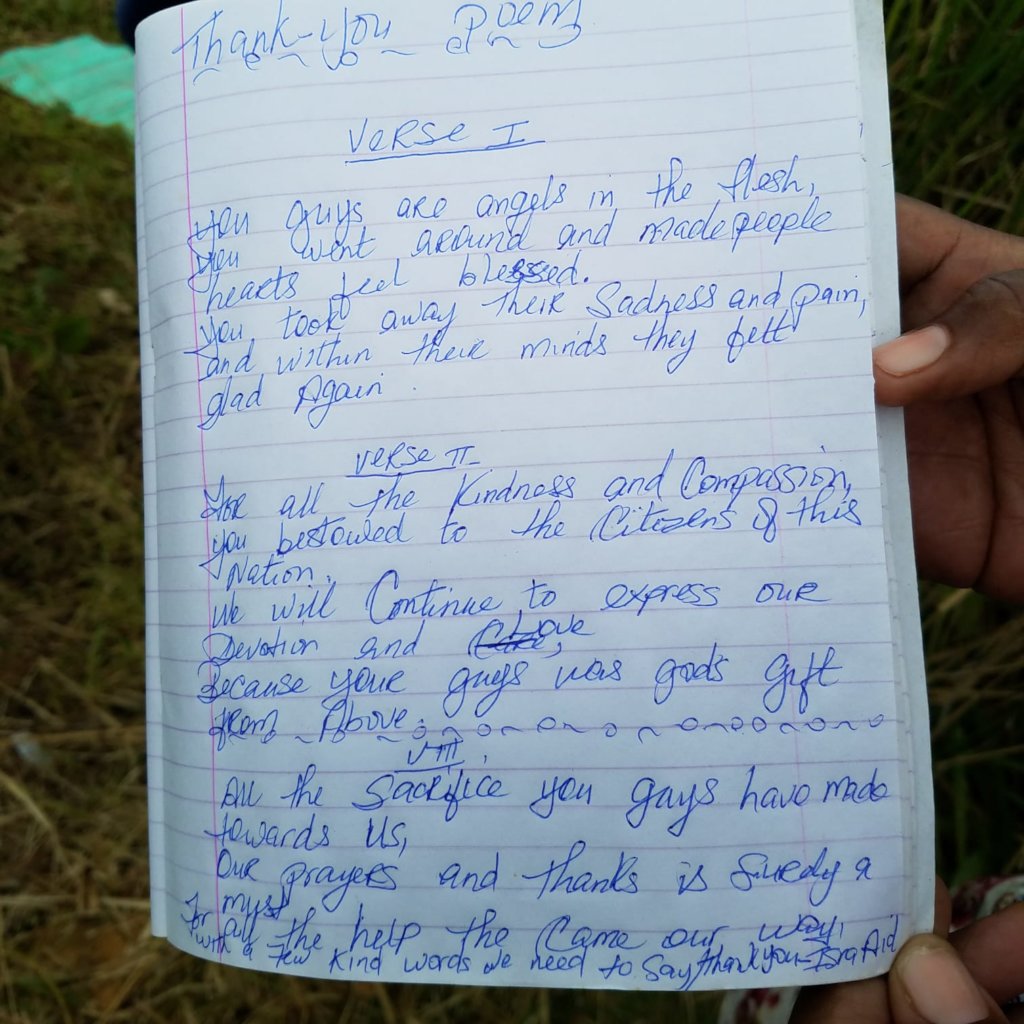 Thank-you Poem
VERSE I
you guys are angels in the flesh,
you went around and made people
hearts feel blessed.
you took away their Sadness and pain,
and within their minds they felt
glad Again.
VERSE II
For all the Kindness and Compassion,
you bestowed to the Citizens of this
Nation.
We will Continue to express our
Devotion and Love,
Because your guys was gods gift
from Above.
V III
All the Sacrifice you guys have made
towards Us,
Our prayers and thanks is Surely a
must
For all the help the Came our way,
with a few Kind words we need to Say thank you-IsraAid